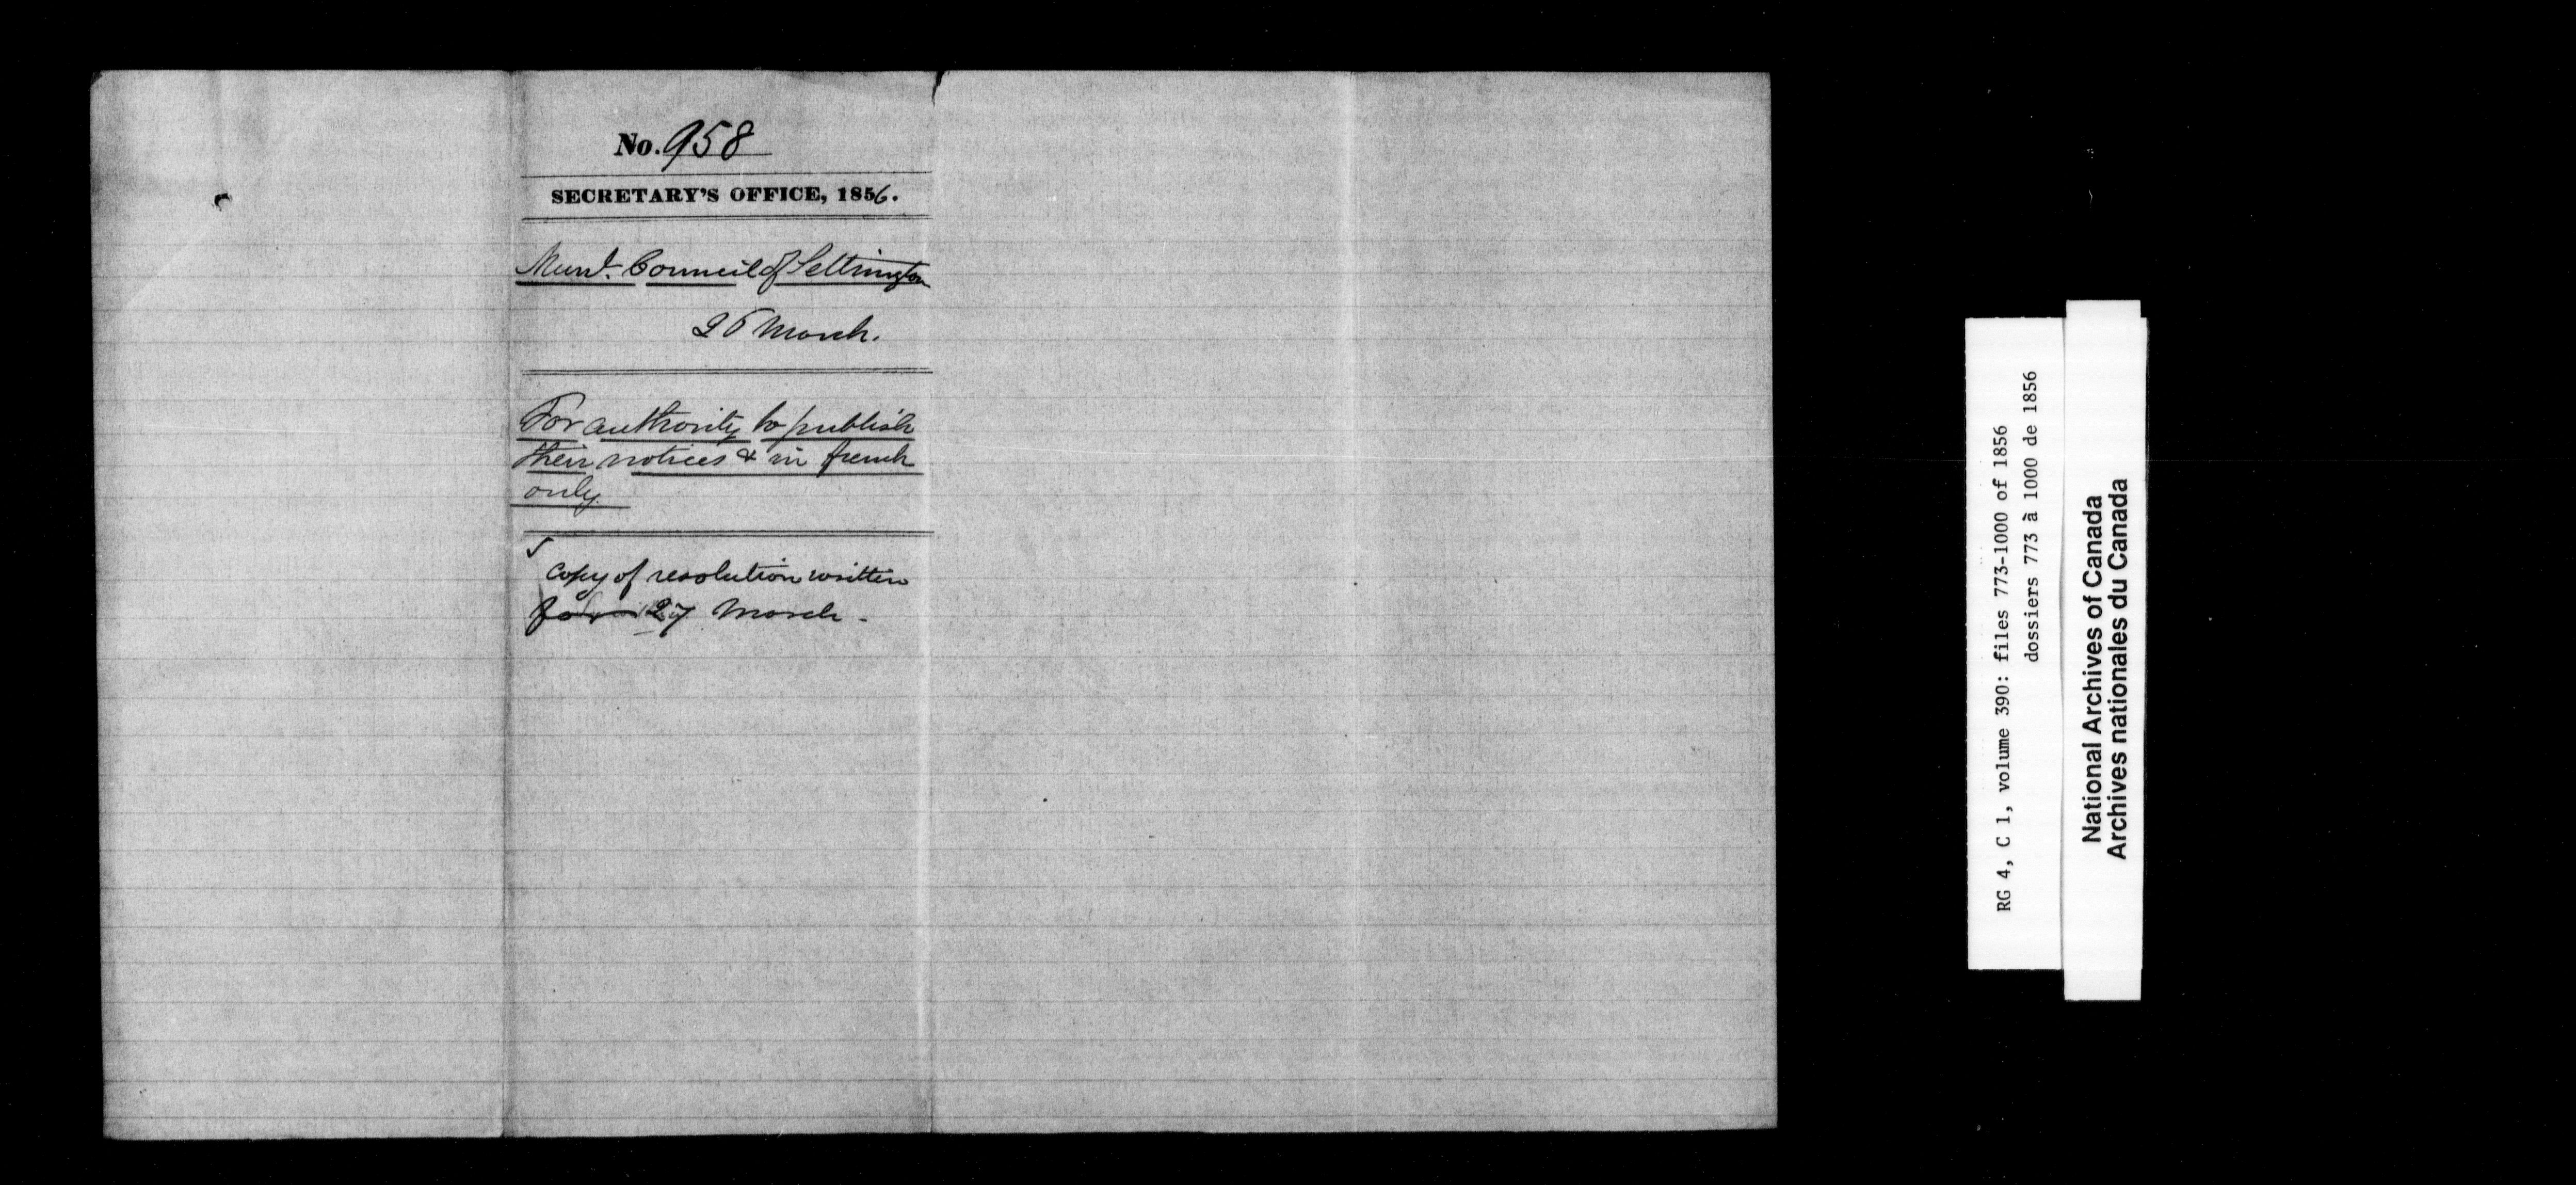 No. 958
SECRETARY'S OFFICE, 1856.
Munl. Council of Settrington
26 March.
For authority to publish
their notices & in french
only.
Copy of resolution written
for 27 March -
RG 4, C 1, volume 390: files 773-1000 of 1856
dossiers 773 à 1000 de 1856
National Archives of Canada
Archives nationales du Canada